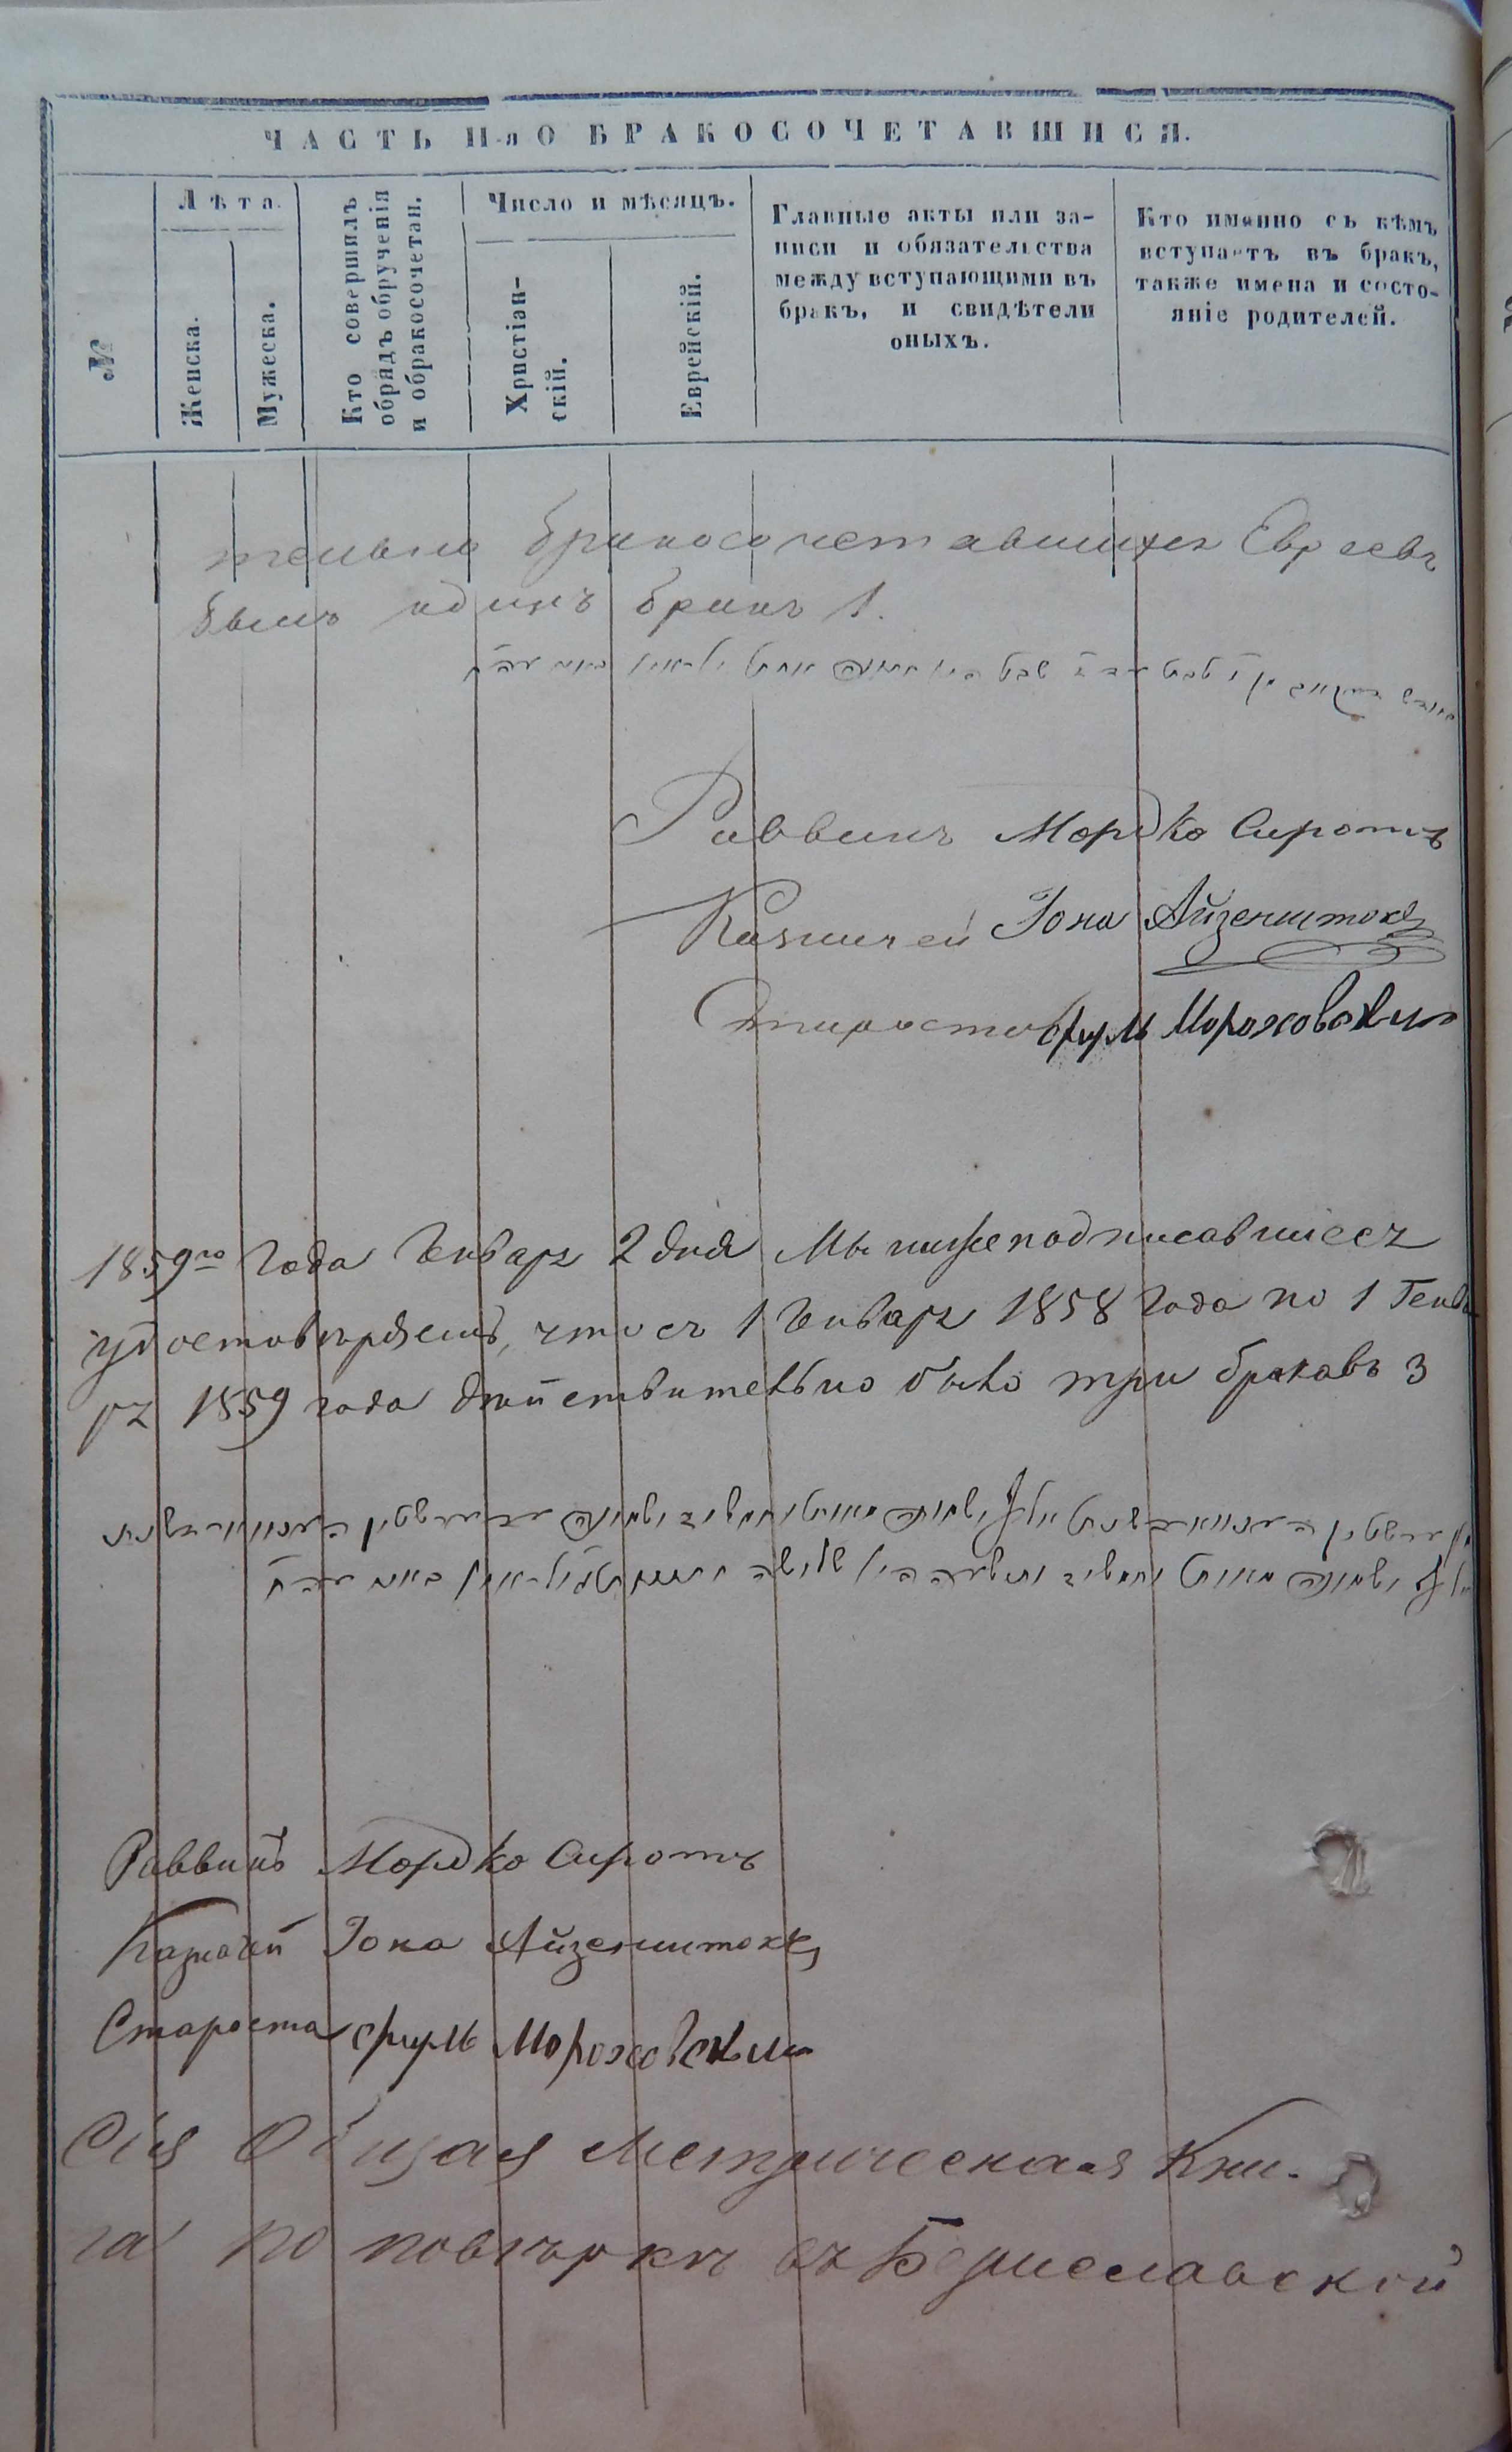 ЧАСТЬ II-я О БРАКОСОЧЕТАВШИСЯ.
№
Лѣта.
Женска.
Мужеска.
Кто совершилъ
обрядъ обрученія
и обракосочетан.
Число и мѣсяцъ.
Христіан-
скій.
Еврейскій.
Главные акты или за-
писи и обязательства
между вступающими въ
бракъ, и свидѣтели
оныхъ.
Кто именно съ кѣмъ
вступаетъ въ бракъ,
также имена и состо-
яніе родителей.
тельно бракосочетавшихся Евреевъ
былъ одинъ бракъ 1.
Раввинъ Мордко Сиротъ
Казначей Іона Айзенштокъ
Староста Сруль Мороховский
1859го года Генваря 2 дня Мы нижеподписавшіеся
удостовѣряемъ, что съ 1 Генваря 1858 года по 1 Генва
ря 1859 года дѣйствительно было три бракавъ 3
Раввинъ Мордко Сиротъ
Казначей Іона Айзенштокъ
Староста Сруль Мороховский
Сія Общая Метрическая Кни-
га по повѣркѣ въ Бериславской